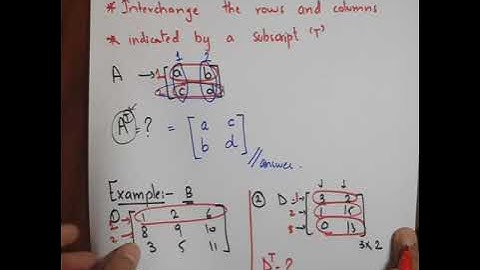 * Interchange the rows and columns
* indicated by a subscript 'T'
1 2
A → 1 [ a b
2 c d ]
Aᵀ = ? = [ a c
b d ]
// answer.
Example:- B
① 1 → [ 1 2 6
2 → 8 9 10
3 5 11 ]
② D = 1 → [ 3 2
2 → 1 15
3 → 0 13 ]
3×2
Dᵀ = ?